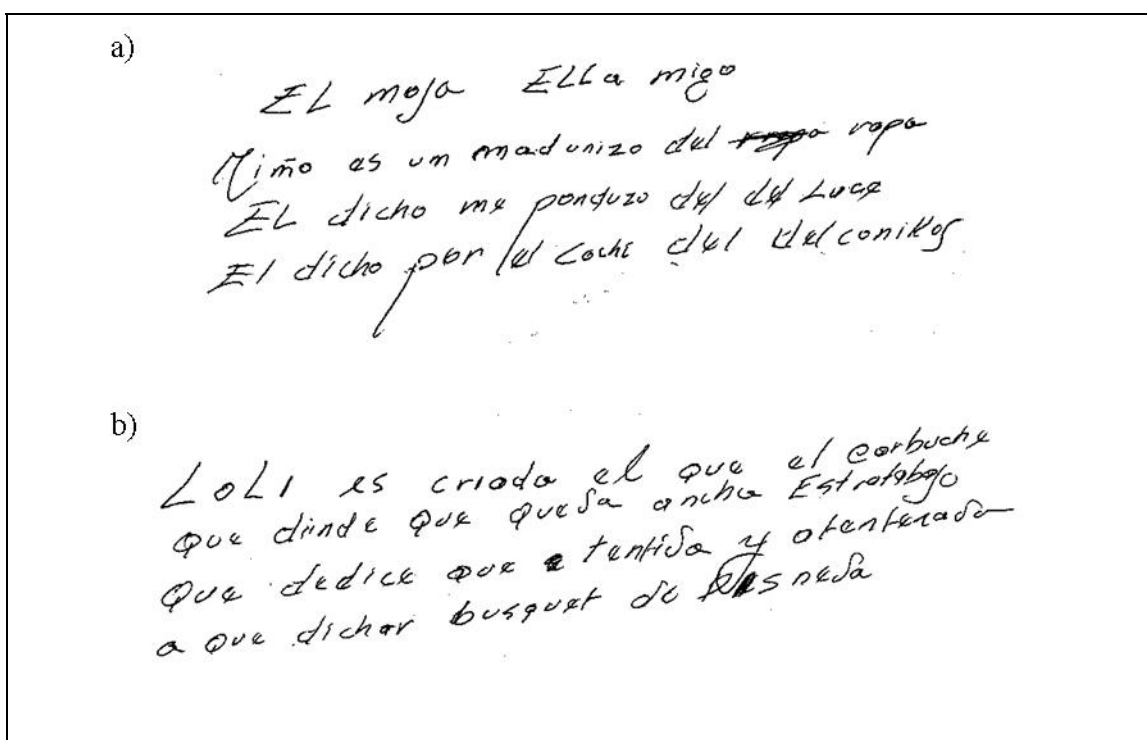 a)
EL moja ELLa migo
Niño es un madunizo del ropa
EL dicho me ponduzo del del Luce
El dicho por el cochi del del conillos
b)
LOLI es criada el que el carbuche
que dinde que queda ancha Estratabajo
que dedice que tentida y atentenada
a que dichar busquet de